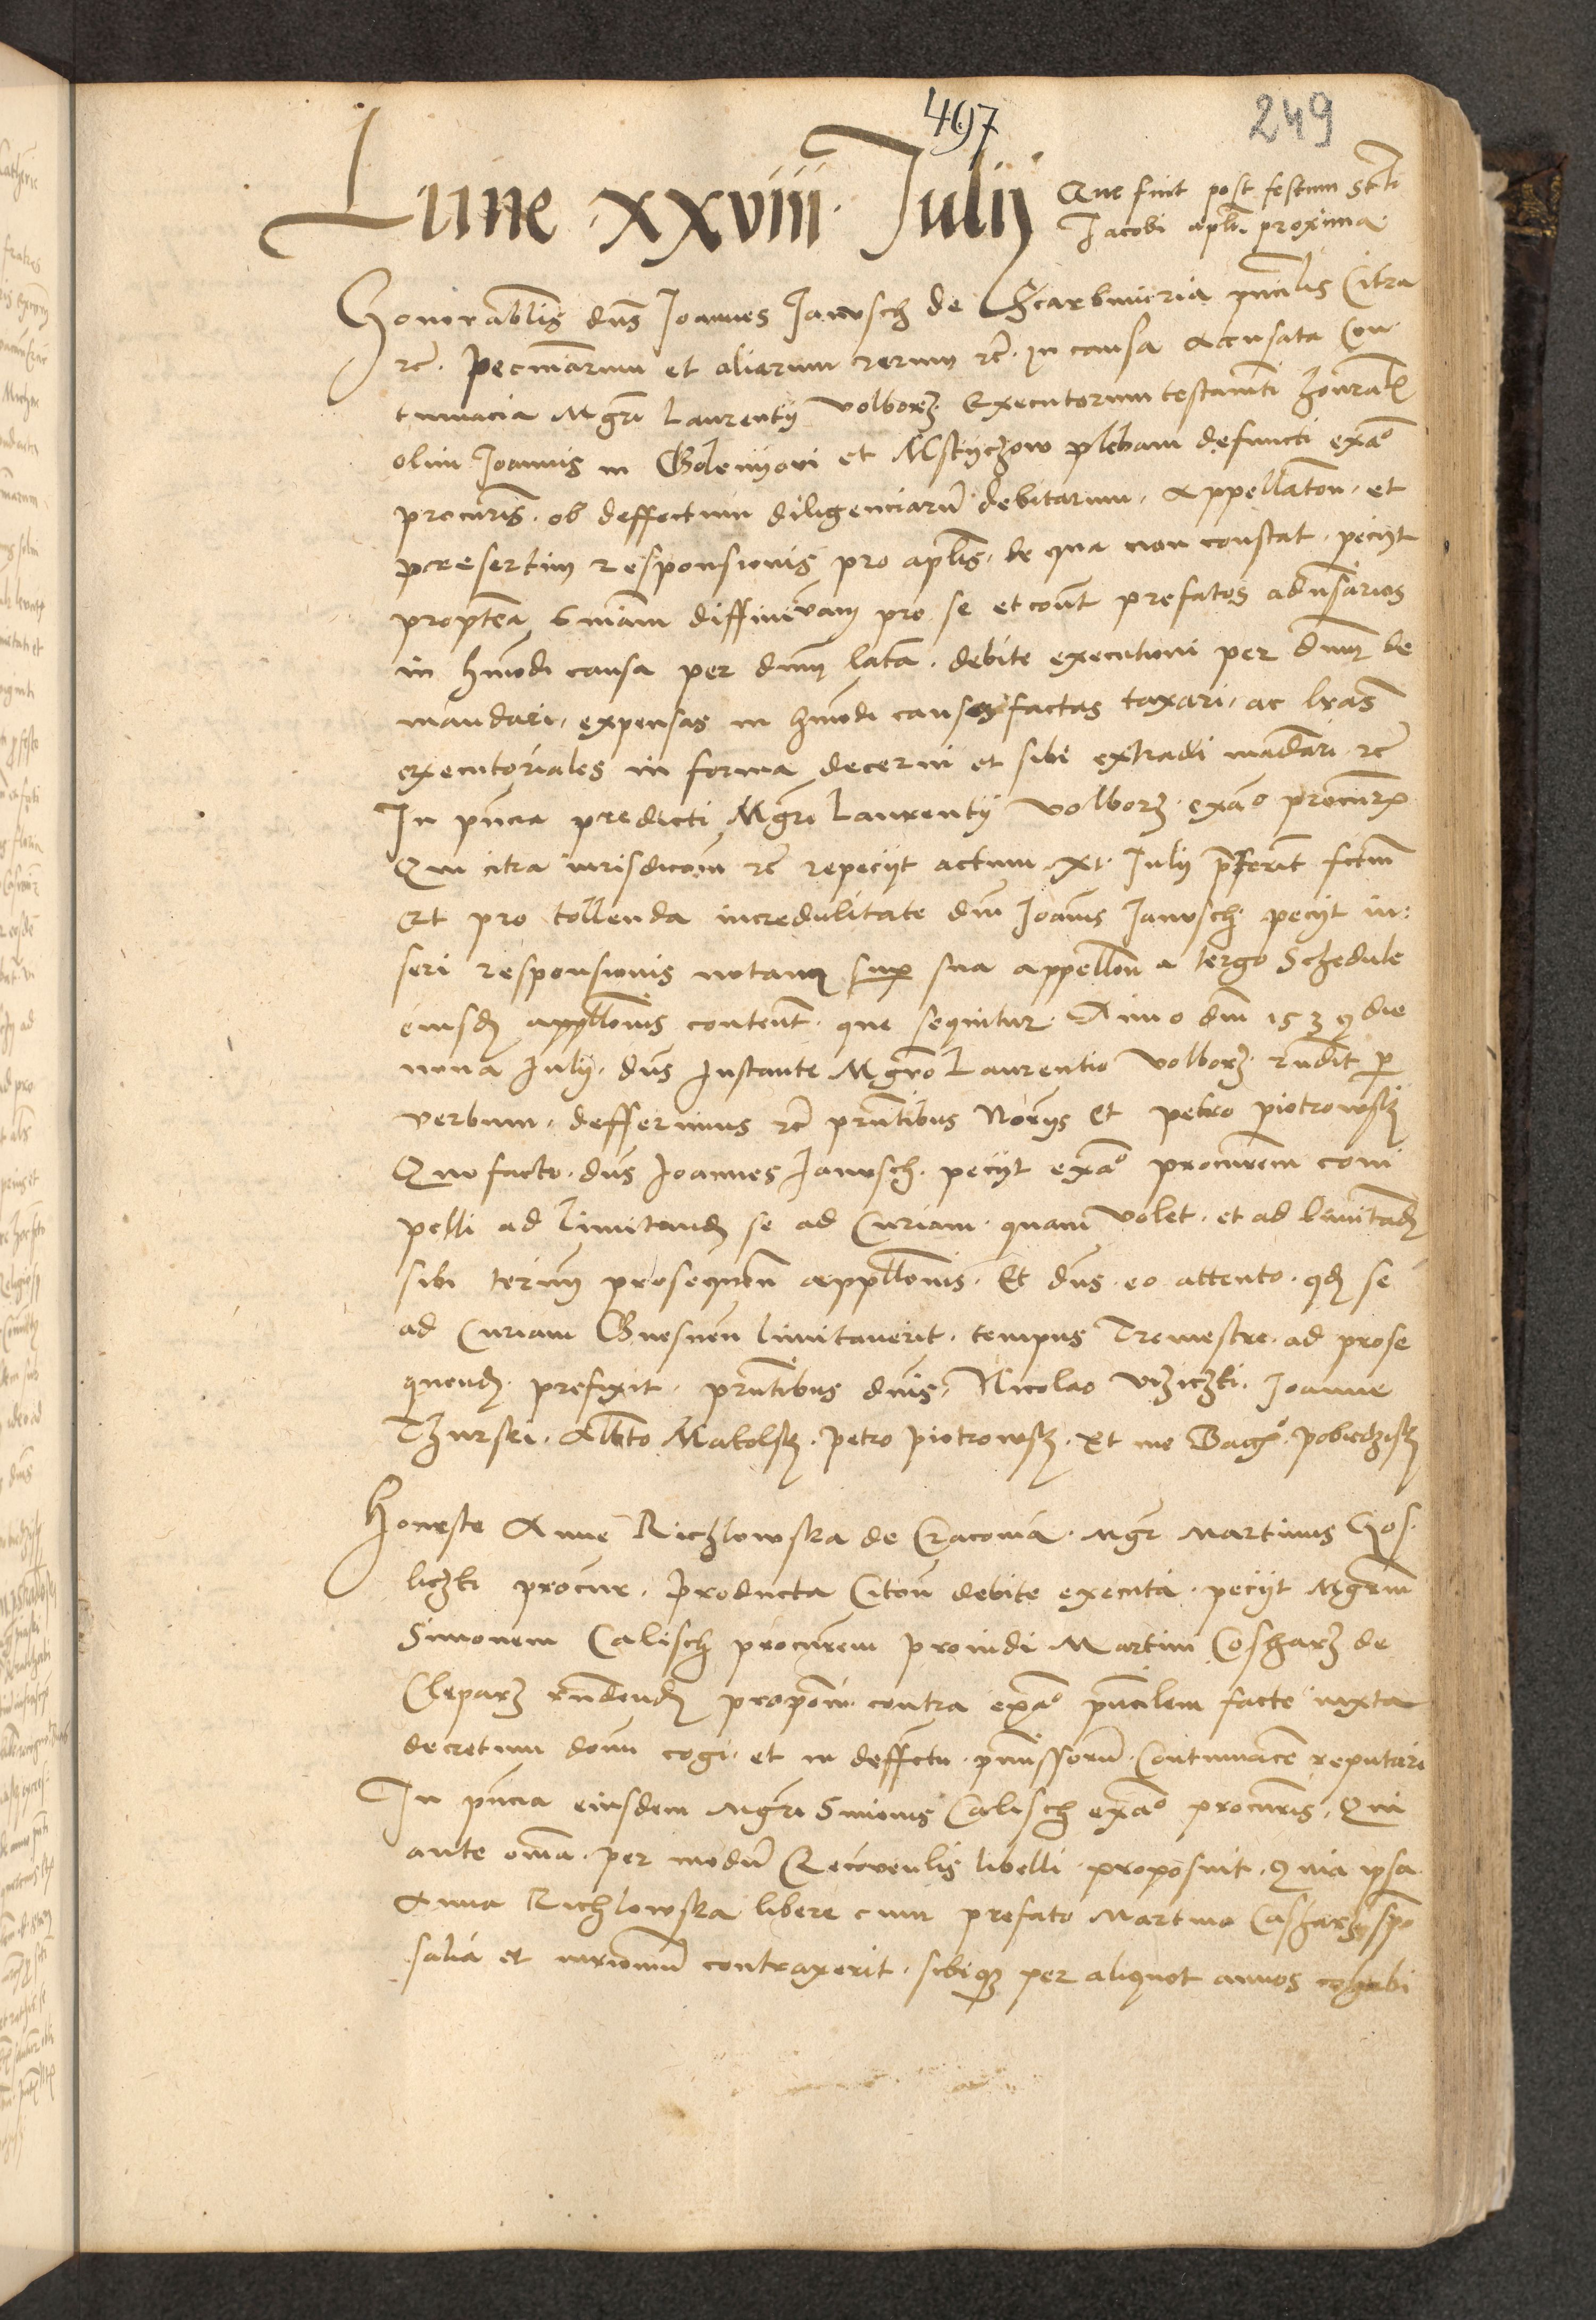 497
249
Lune · xxviii · Julij
Que fuit post festum Scti
Jacobi apli proxima
Honorabilis dns Joannes Janusch de Scarbmiria pncialis Citra
rc. Pecuniarum et aliarum rerum rc. in causa Accusata Con
tumacia Mgri Laurentij Volborz Executorum testamti honorabl
olim Joannis in Golenyovi et Mstyczow plebani defuncti exao
procuris ob deffectum diligenciarum debitarum, Appellaton, et
presertim responsionis pro aplis, de qua non constat, pecijt
proptea Sniam diffinitivam pro se et cont prefatos adusarios
in hmodi causa per dnm lata debite executioni per dnm de
mandari, expensas in hmodi causa factas taxari, ac lras
executoriales in forma decerni et sibi extradi mandari rc
In pncia predicti Mgri Laurentij Volborz exao procuris
Qui citra iurisdicoem rc repecijt actum Julij fctum
Et pro tollenda incredulitate dni Joanis Janusch pecijt in
seri responsionis notam sup sua appellon a tergo Schedule
eiusdem appllonis content. que sequitur. Anno dni 1539 die
nona Julij. dns Instante Mgro Laurentio Volborz rndit p
verbum, defferimus rc pntibus Norijs et petro piotrowsk
Quo facto dns Joannes Janusch pecijt exao procurem com
pelli ad limitand se ad Curiam quam volet, et ad limitand
sibi terim prosequtn appllonis. Et dns eo attento qd se
ad Curiam Gnesnen limitaverit, tempus Tremestre ad prose
quend prefixit, pntibus dnis, Nicolao Joanne
Thurski, Albto Makolsk, petro piotrowsk, Et me pobiedzisk
Honeste Anne Richlowska de Cracovia. Mgr Martinus Gos
liczki procur. Producta Citon debite executa, pecijt Mgrum
Simonem Calisch procurem proindi Martini Cosharz de
Cleparz rndend propom contra exao pncilem facte iuxta
decretum domi cogi, et in deffectu pmissorum Contumacem reputari
In pncia eiusdem Mgri Simonis Calisch exao procuris, Qui
ante oma, per modum Reconvenlis libelli proposuit, Quia ipsa
Anna Richlowska libere cum prefato Martino Casharz spo
salia et mrionium contraxerit, sibiq per aliquot annos cohabi